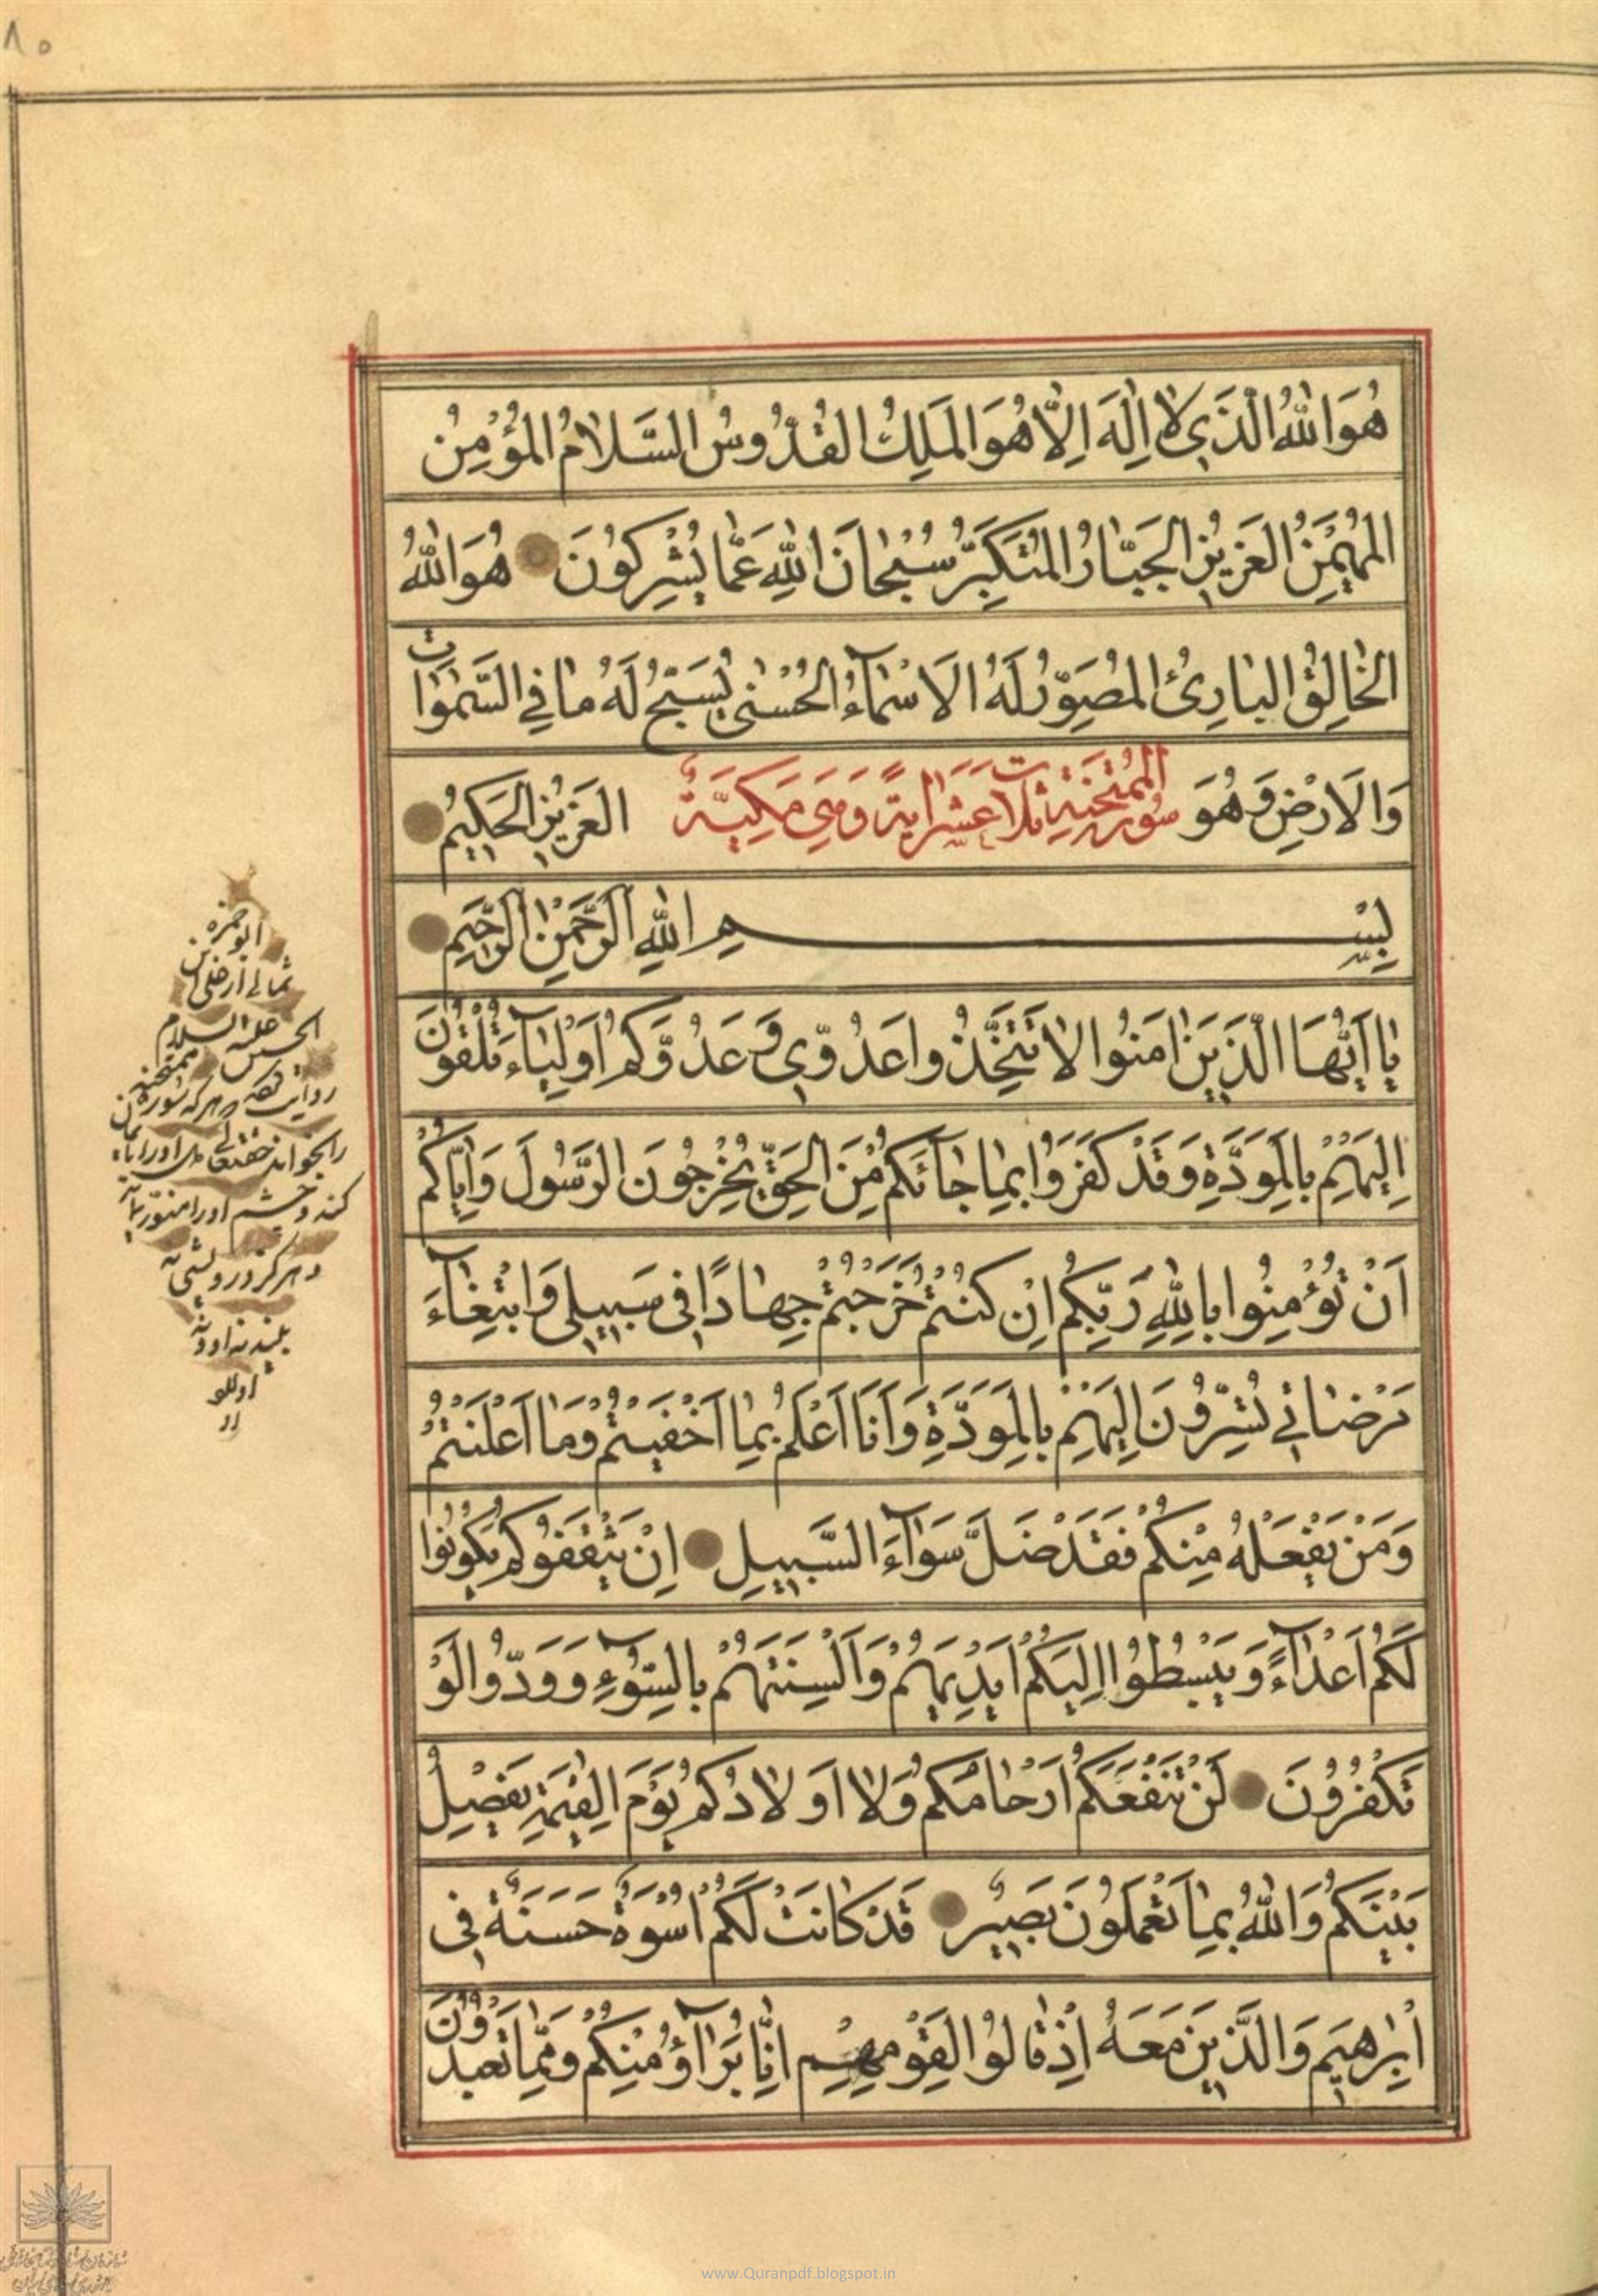 ٨٥
هُوَ اللهُ الَّذِي لا اِلٰهَ اِلَّا هُوَ المَلِكُ القُدُّوسُ السَّلامُ المُؤْمِنُ
المُهَيْمِنُ العَزِيزُ الجَبّارُ المُتَكَبِّرُ سُبْحانَ اللهِ عَمّا يُشْرِكُونَ هُوَ اللهُ
الخالِقُ البارِئُ المُصَوِّرُ لَهُ الاَسْمآءُ الحُسْنى يُسَبِّحُ لَهُ ما فِي السَّمٰوٰاتِ
وَالاَرْضِ وَهُوَ العَزِيزُ الحَكِيمُ
سُورة المُمْتَحِنَةِ ثلاث عَشَرَ ايَةً وَهِيَ مَكِيَّةٌ
بِسْمِ اللهِ الرَّحْمٰنِ الرَّحِيمِ
يا اَيُّهَا الَّذِينَ امَنُوا لا تَتَّخِذُوا عَدُوِّي وَعَدُوَّكُمْ اَوْلِيآءَ تُلْقُونَ
اِلَيْهِمْ بِالمَوَدَّةِ وَقَدْ كَفَرُوا بِما جآئَكُمْ مِنَ الحَقِّ يُخْرِجُونَ الرَّسُولَ وَاِيّاكُمْ
اَنْ تُؤْمِنُوا بِاللهِ رَبِّكُمْ اِنْ كُنْتُمْ خَرَجْتُمْ جِهادًا فِي سَبِيلِي وَابْتِغآءَ
مَرْضاتِي تُسِرُّونَ اِلَيْهِمْ بِالمَوَدَّةِ وَاَنَا اَعْلَمُ بِما اَخْفَيْتُمْ وَما اَعْلَنْتُمْ
وَمَنْ يَفْعَلْهُ مِنْكُمْ فَقَدْ ضَلَّ سَوآءَ السَّبِيلِ اِنْ يَثْقَفُوكُمْ يَكُونُوا
لَكُمْ اَعْدآءً وَيَبْسُطُوا اِلَيْكُمْ اَيْدِيَهُمْ وَاَلْسِنَتَهُمْ بِالسُّوءِ وَوَدُّوا لَوْ
تَكْفُرُونَ لَنْ تَنْفَعَكُمْ اَرْحامُكُمْ وَلا اَوْلادُكُمْ يَوْمَ القِيٰمَةِ يَفْصِلُ
بَيْنَكُمْ وَاللهُ بِما تَعْمَلُونَ بَصِيرٌ قَدْ كانَتْ لَكُمْ اُسْوَةٌ حَسَنَةٌ فِي
اِبْرٰهِيمَ وَالَّذِينَ مَعَهُ اِذْ قالُوا لِقَوْمِهِمْ اِنّا بُرَآؤُ مِنْكُمْ وَمِمّا تَعْبُدُونَ
ابو حمزه
ثمالی از علی بن
الحسین علیه السلام
روایت هر که سوره ممتحنه
را بخواند
کند و چشم او را منور
و هرگز درویشی
www.Quranpdf.blogspot.in